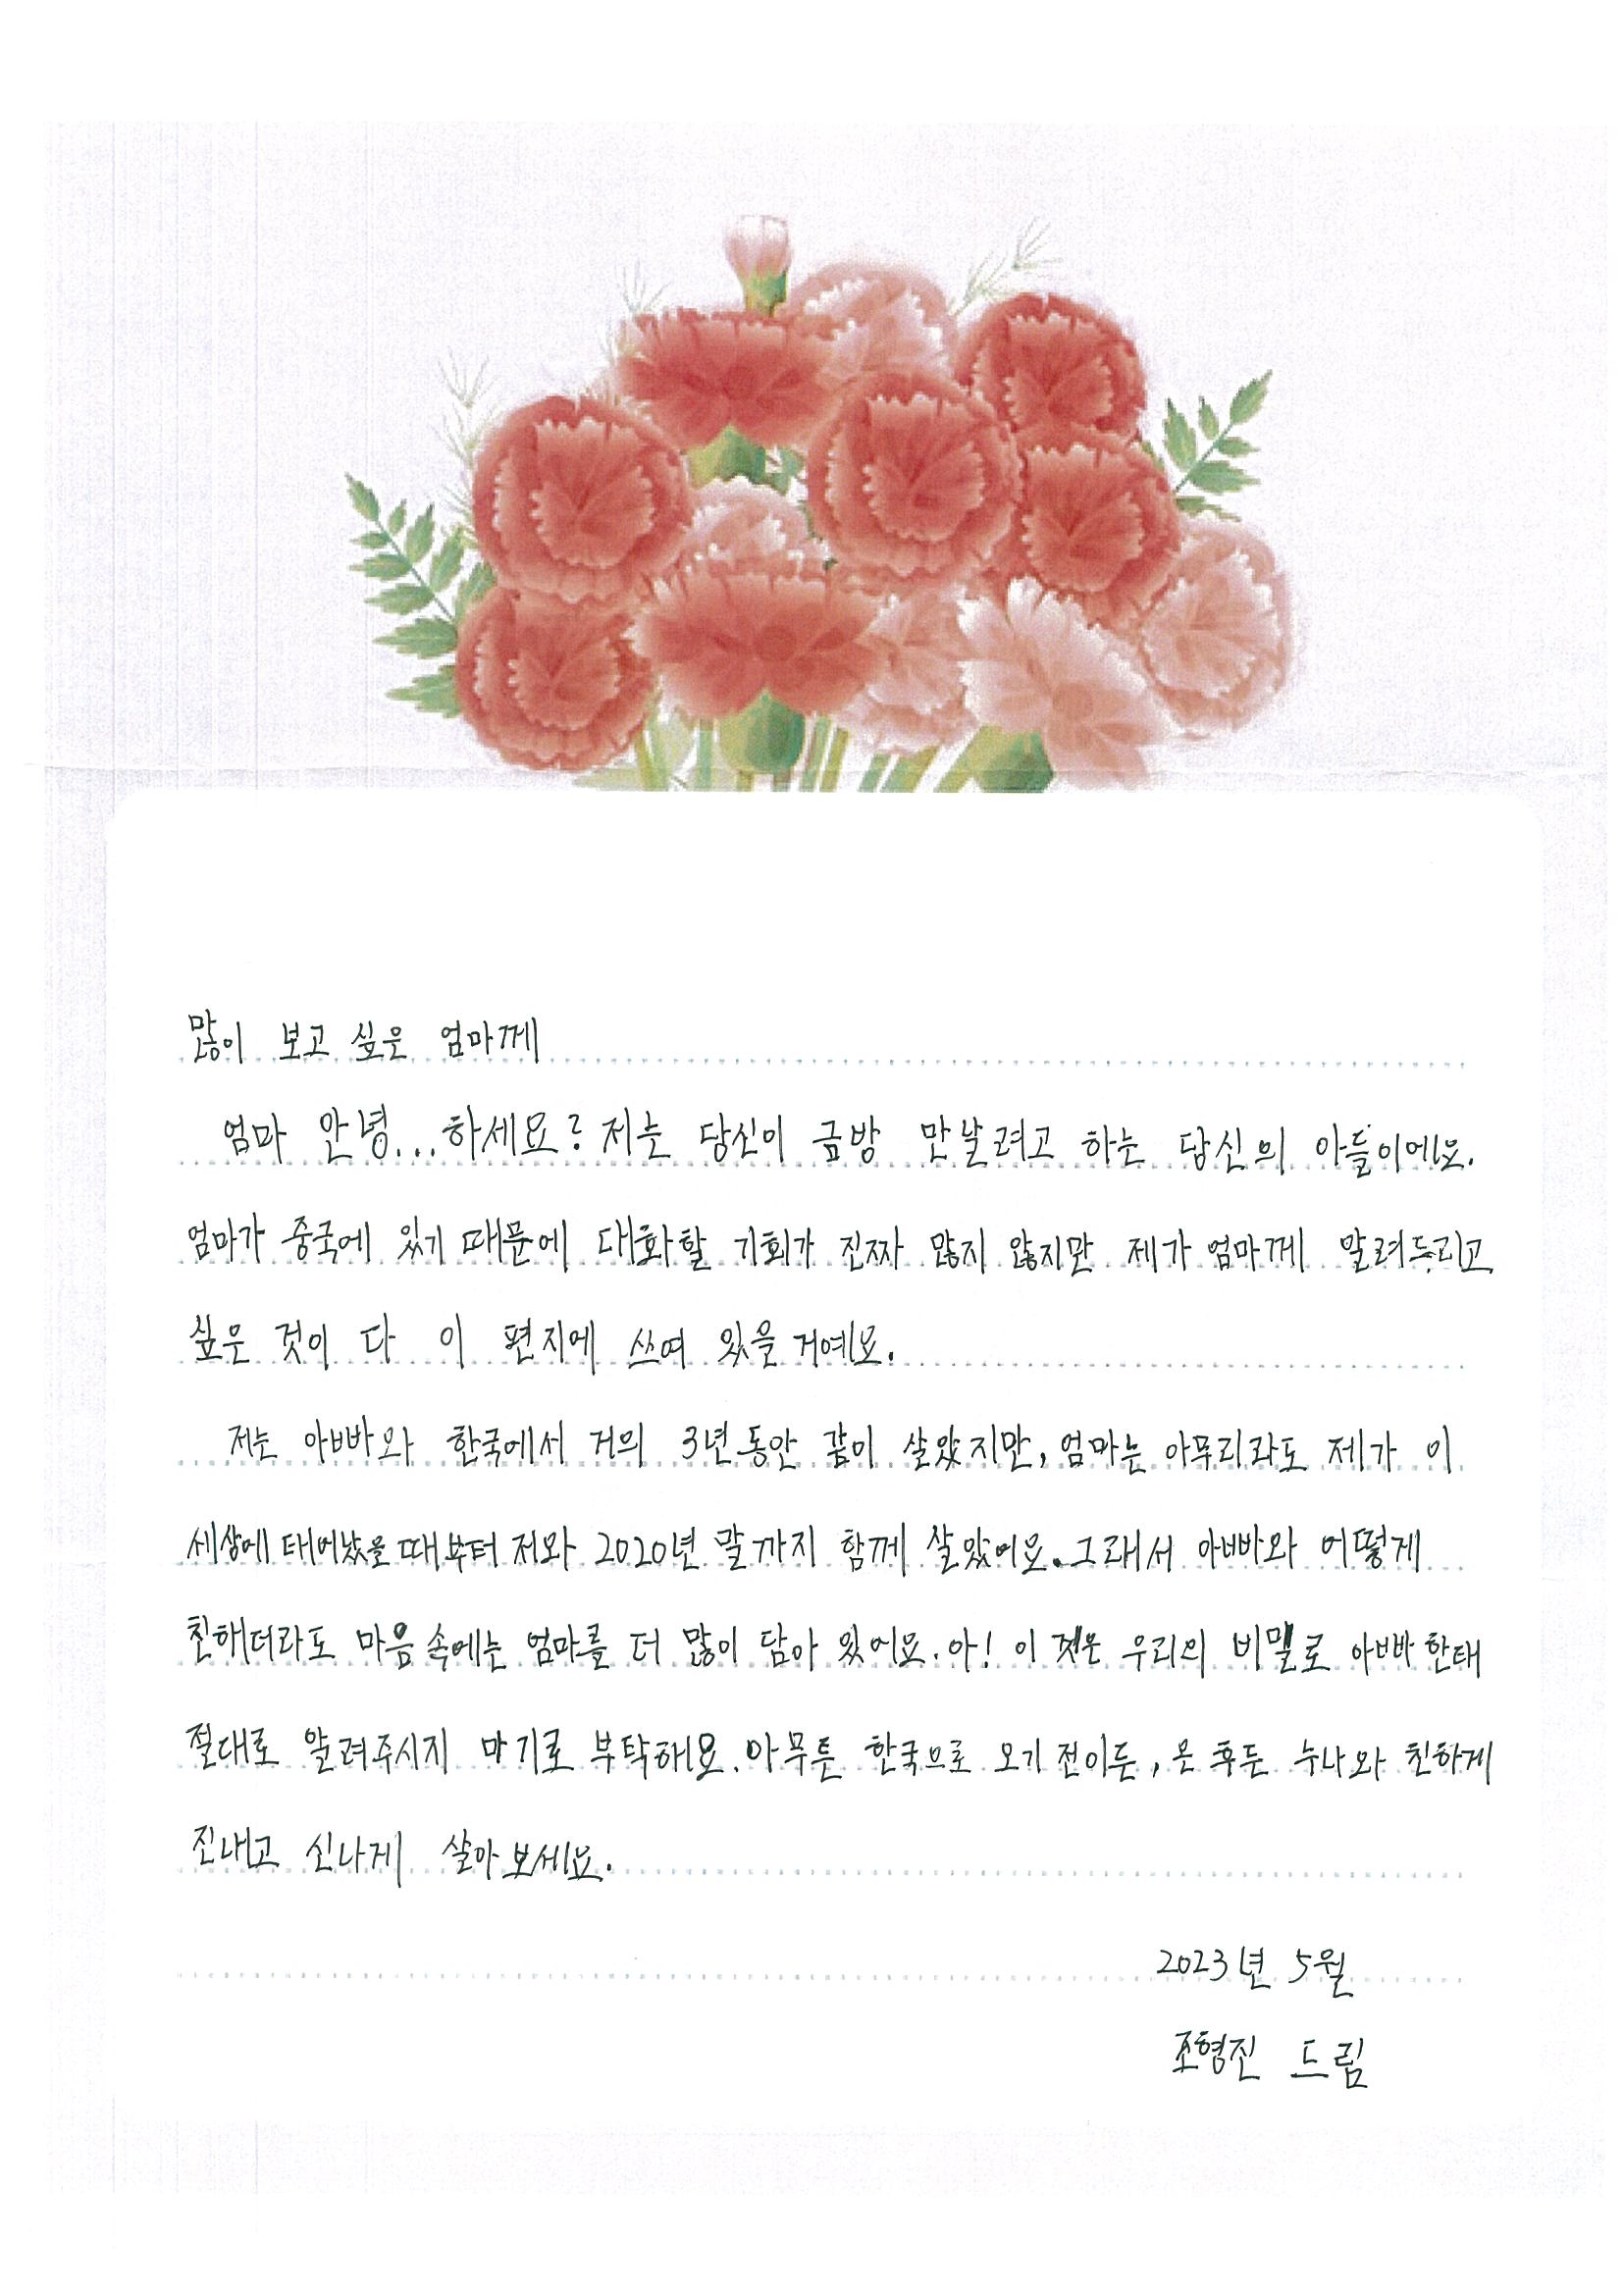 많이 보고 싶은 엄마께
엄마 안녕...하세요? 저는 당신이 금방 만날려고 하는 당신의 아들이에요.
엄마가 중국에 있기 때문에 대화할 기회가 진짜 많지 않지만 제가 엄마께 알려드리고
싶은 것이 다 이 편지에 쓰여 있을 거예요.
저는 아빠와 한국에서 거의 3년동안 같이 살았지만, 엄마는 아무리라도 제가 이
세상에 태어났을 때부터 저와 2020년 말까지 함께 살았어요. 그래서 아빠와 어떻게
친해더라도 마음 속에는 엄마를 더 많이 담아 있어요. 아! 이 것은 우리의 비밀로 아빠한태
절대로 알려주시지 마기로 부탁해요. 아무튼 한국으로 오기 전이든, 온 후든 누나와 친하게
진내고 신나게 살아보세요.
2023년 5월
조형진 드림